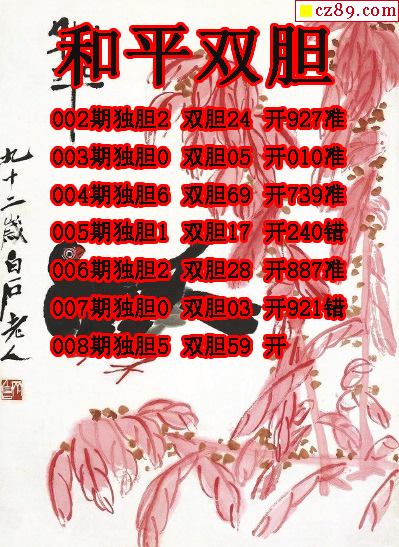 cz89.com
和平双胆
002期独胆2 双胆24 开927准
003期独胆0 双胆05 开010准
004期独胆6 双胆69 开739准
005期独胆1 双胆17 开240错
006期独胆2 双胆28 开887准
007期独胆0 双胆03 开921错
008期独胆5 双胆59 开
九十二歲白石老人